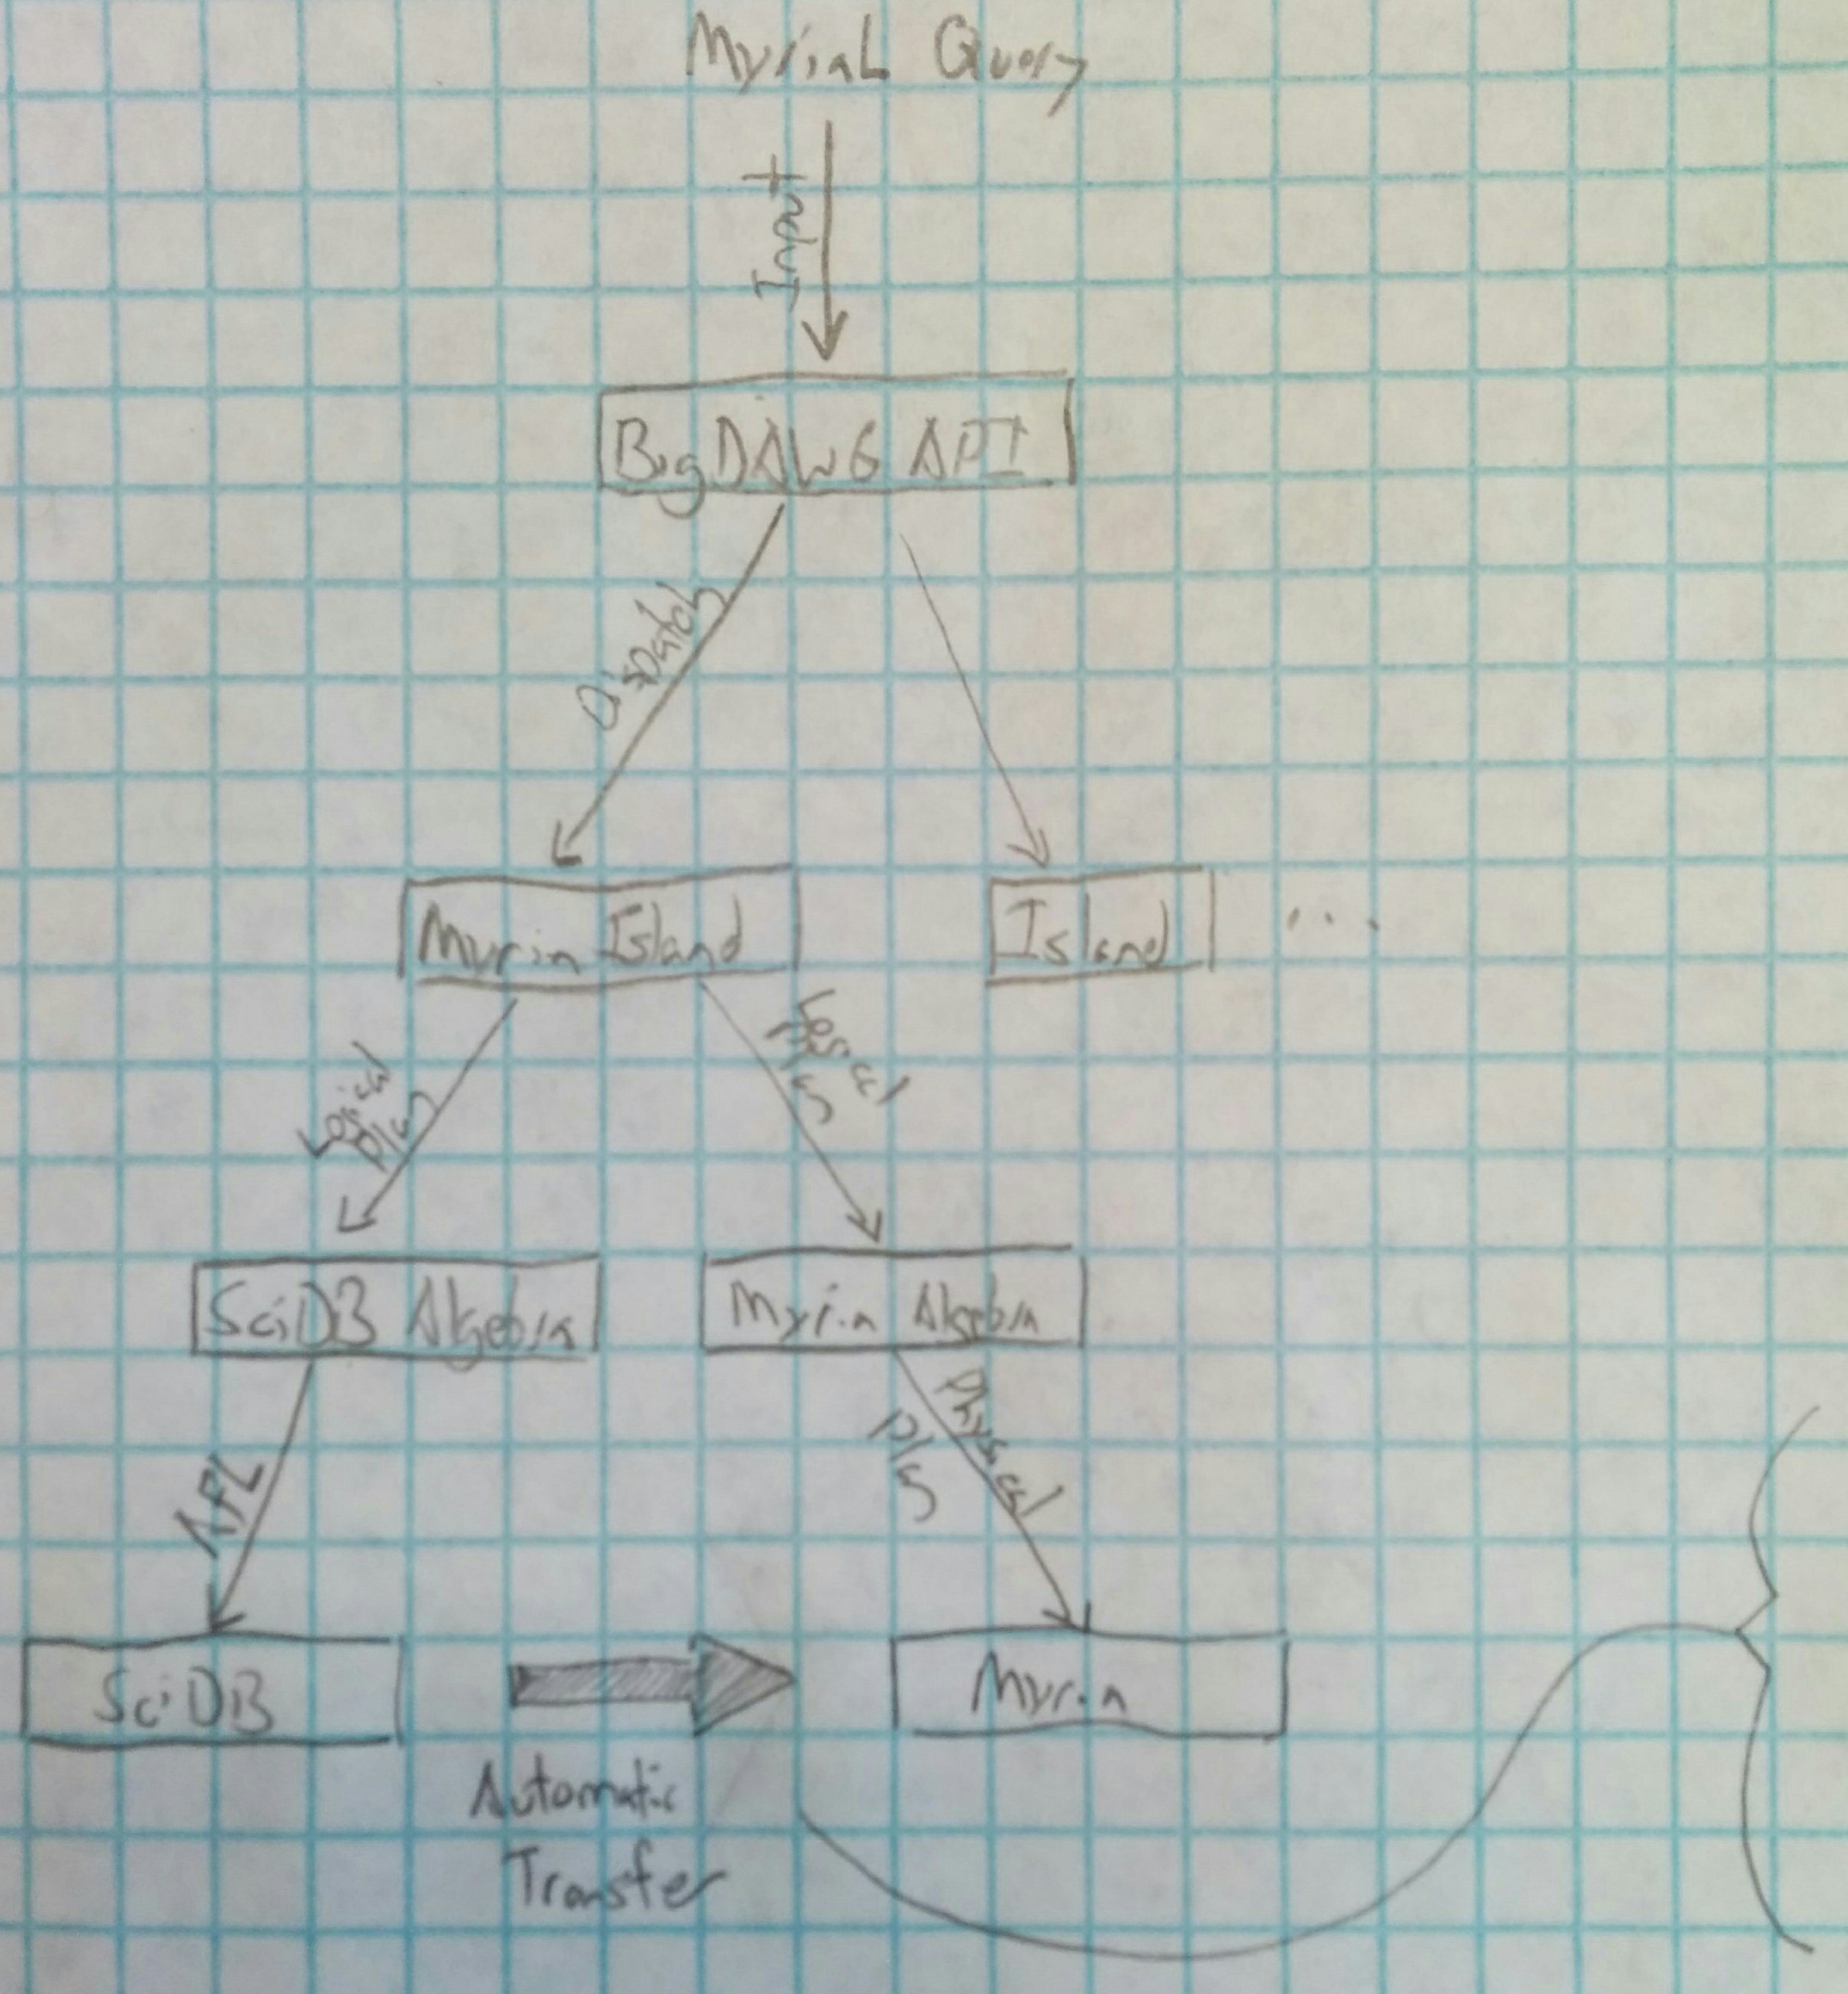 MyriaL Query
Input
BigDAWG API
Dispatch
Myria Island
Island ...
Logical
Plan
Logical
Plan
SciDB Algebra
Myria Algebra
AFL
Physical
Plan
SciDB
Myria
Automatic
Transfer